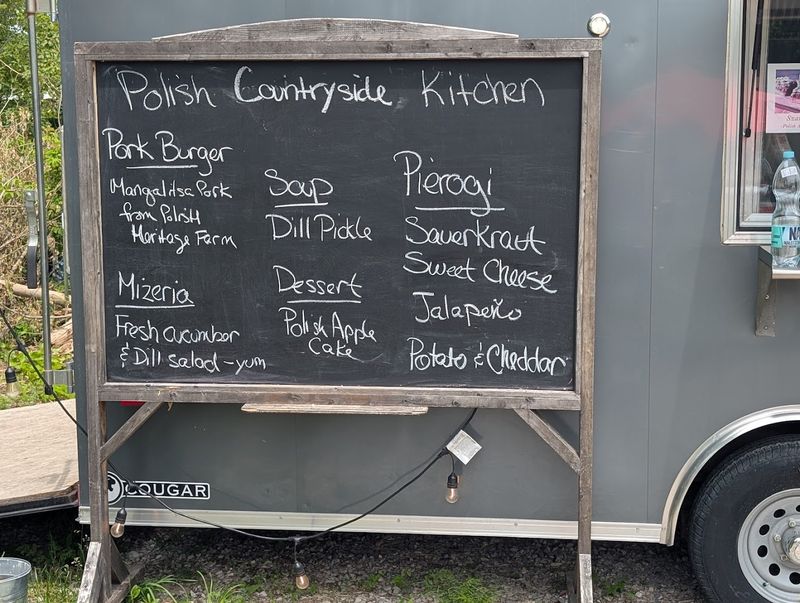 Polish Countryside Kitchen
Pork Burger
Mangalitsa Pork
from Polish
Heritage Farm
Mizeria
Fresh cucumber
& Dill salad - yum
Soup
Dill Pickle
Dessert
Polish Apple
Cake
Pierogi
Sauerkraut
Sweet Cheese
Jalapeño
Potato & Cheddar
COUGAR